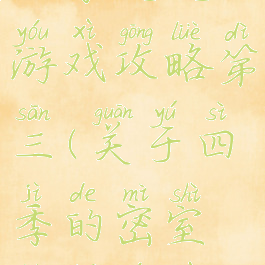 yóu xì gōng lüè dì
游戏攻略第
sān guān yú sì
三(关于四
jì de mì shì
季的密室